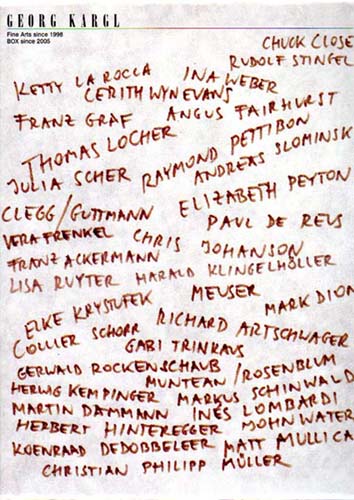 GEORG KARGL
Fine Arts since 1998
BOX since 2005
CHUCK CLOSE
RUDOLF STINGEL
KETTY LA ROCCA INA WEBER
CERITH WYN EVANS
FRANZ GRAF ANGUS FAIRHURST
THOMAS LOCHER RAYMOND PETTIBON
JULIA SCHER ANDREAS SLOMINSK
CLEGG/GUTTMANN ELIZABETH PEYTON
VERA FRENKEL CHRIS JOHANSON PAUL DE REUS
FRANZ ACKERMANN
LISA RUYTER HARALD KLINGELHÖLLER
ELKE KRYSTUFEK MEUSER MARK DION
COLLIER SCHORR RICHARD ARTSCHWAGER
GABI TRINKAUS
GERWALD ROCKENSCHAUB
MUNTEAN/ROSENBLUM
HERWIG KEMPINGER MARKUS SCHINWALD
MARTIN DAMMANN INÉS LOMBARDI
HERBERT HINTEREGGER JOHN WATER
KOENRAAD DEDOBBELEER MATT MULLICA
CHRISTIAN PHILIPP MÜLLER